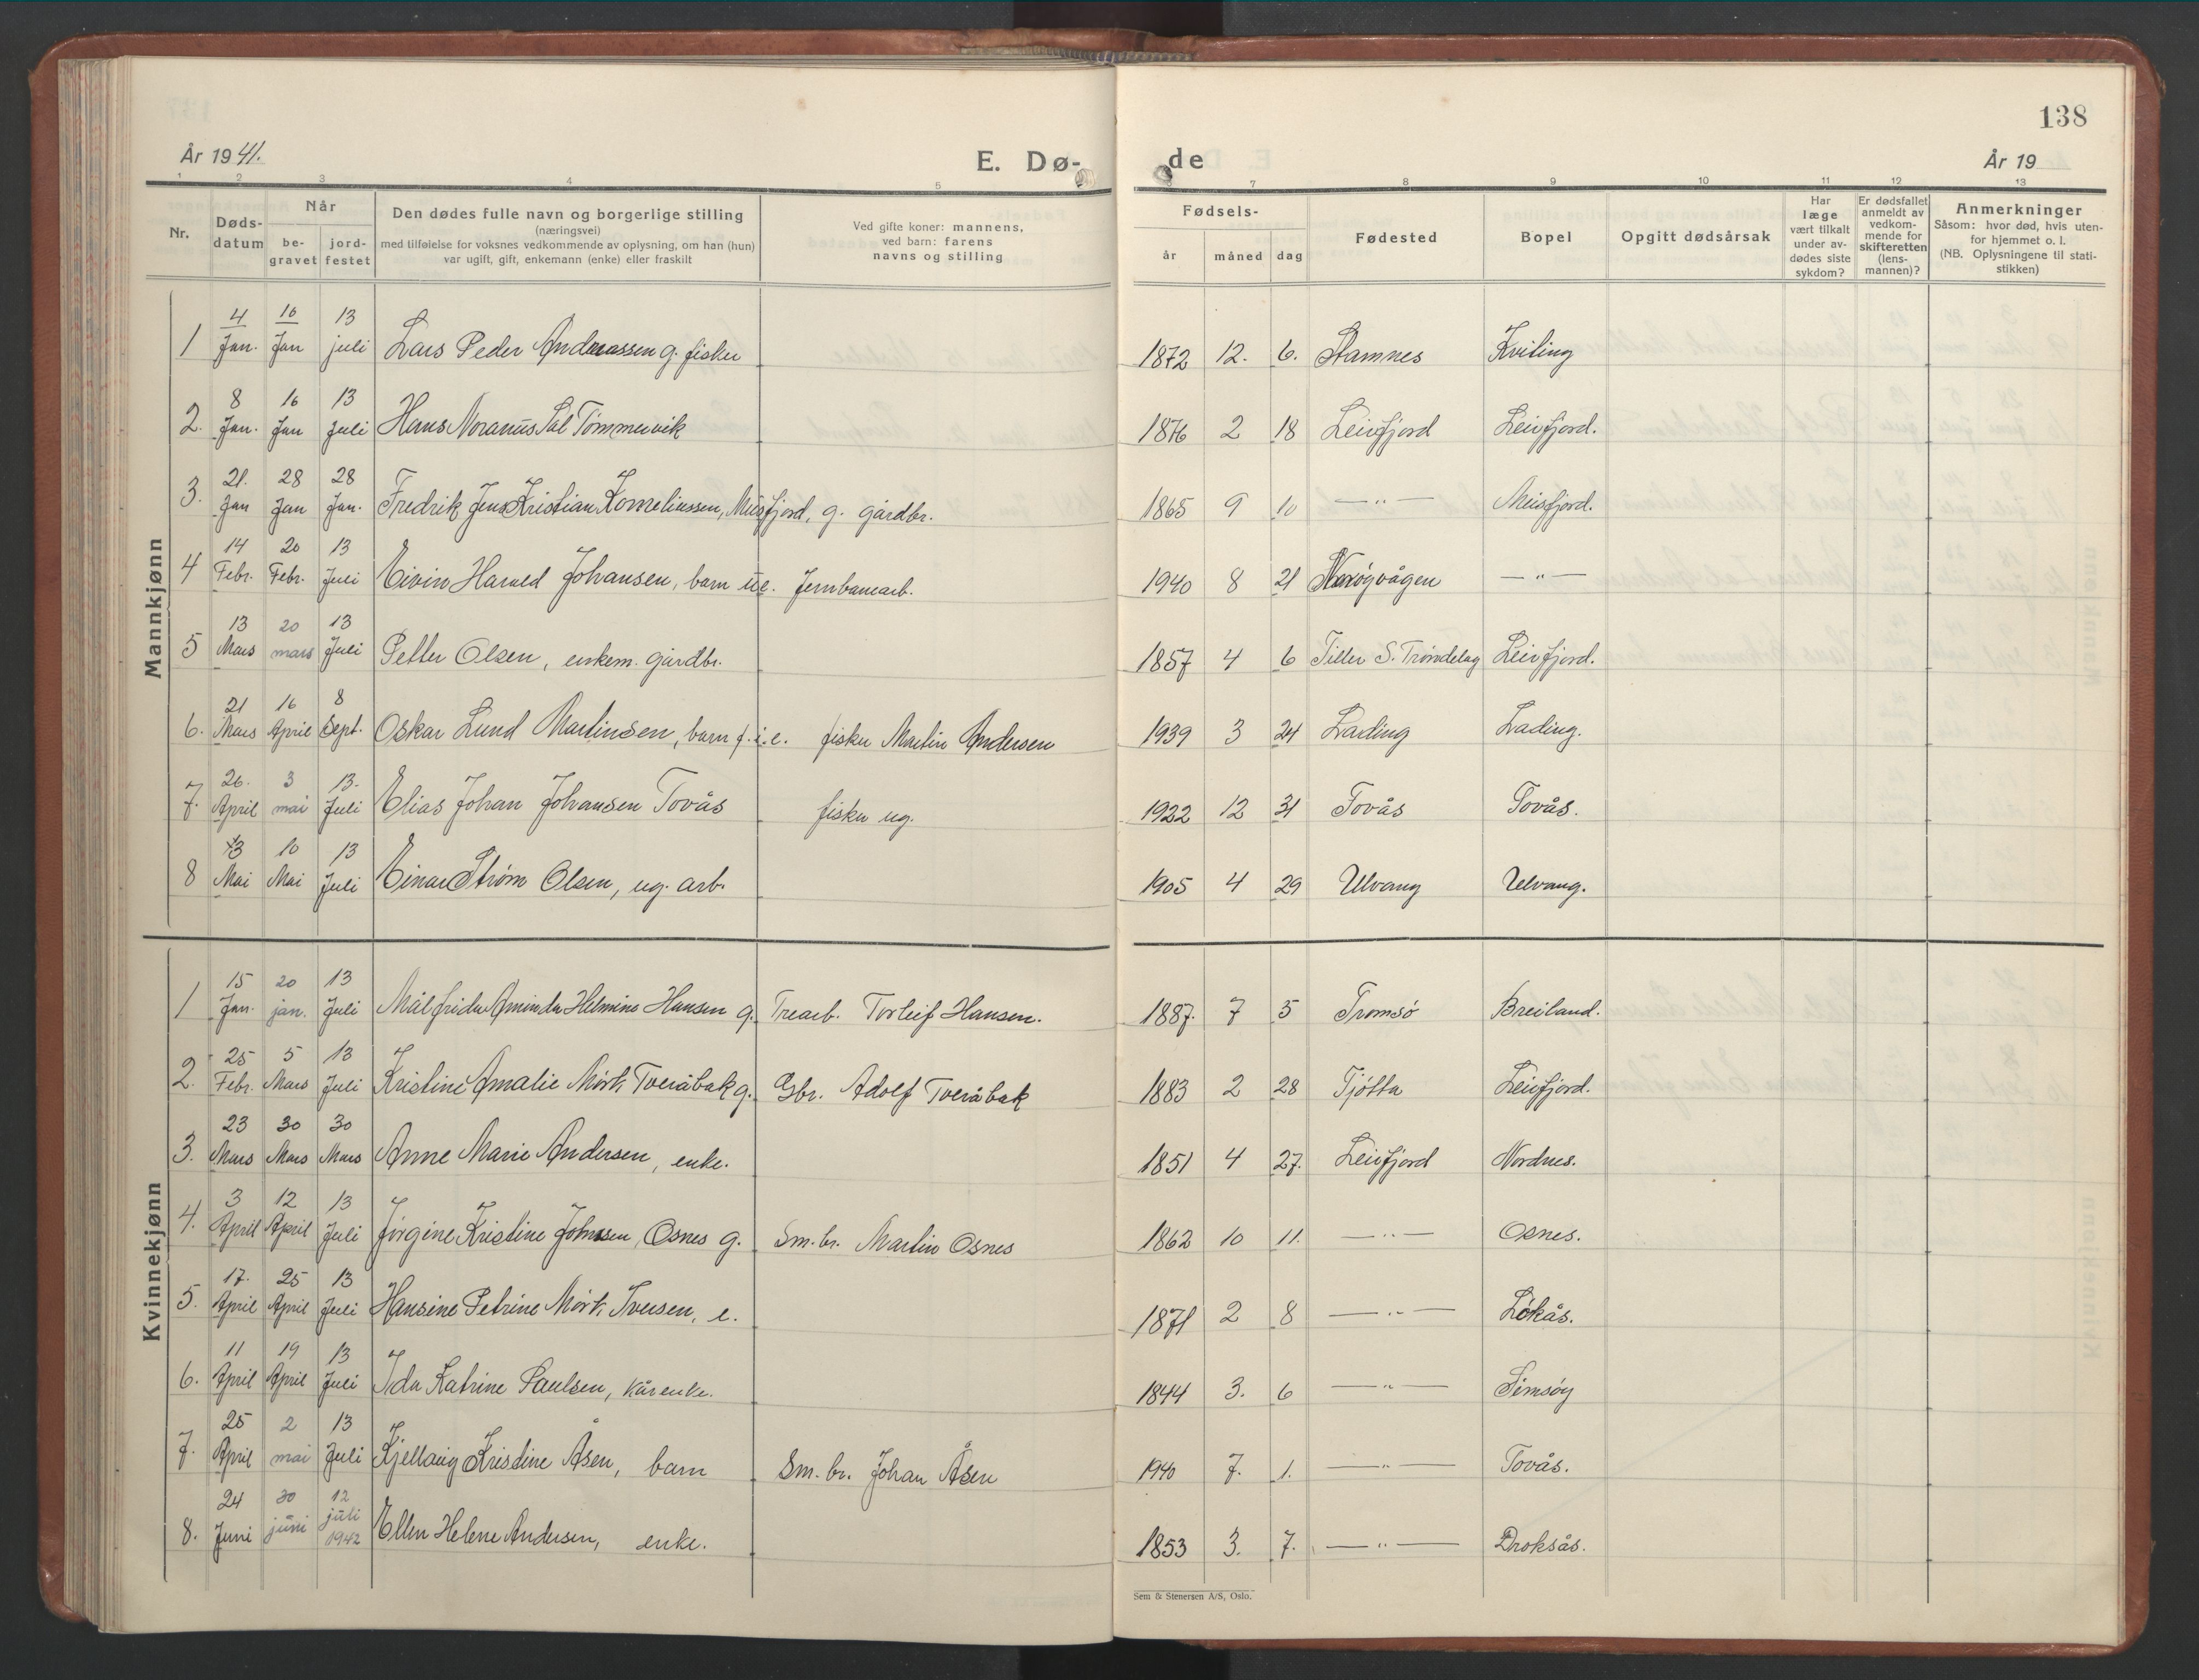 138
År 1941.
E. Dø- de
År 19
1 2 3 4 5 6 7 8 9 10 11 12 13
Nr.
Døds-
datum
Når
be-
gravet
jord-
festet
Den dødes fulle navn og borgerlige stilling
(næringsvei)
med tilføielse for voksnes vedkommende av oplysning, om han (hun)
var ugift, gift, enkemann (enke) eller fraskilt
Ved gifte koner: mannens,
ved barn: farens
navns og stilling
Fødsels-
år måned dag
Fødested
Bopel
Opgitt dødsårsak
Har
læge
vært tilkalt
under av-
dødes siste
sykdom?
Er dødsfallet
anmeldt av
vedkom-
mende for
skifteretten
(lens-
mannen)?
Anmerkninger
Såsom: hvor død, hvis uten-
for hjemmet o. l.
(NB. Oplysningene til stati-
stikken)
Mannkjønn
4 16 13
1 Jan. Jan juli Lars Peder Andreassen g. fisker 1872 12. 6. Stamnes Kviting
8 16 13
2. Jan. Jan Juli Hans Noranus Sal Tømmervik 1876 2 18 Leirfjord Leirfjord.
21. 28 28
3. Jan Jan Jan. Fredrik Jens Kristian Korneliussen, Meisfjord, g. gårdbr. 1865 9 10 — " — Meisfjord.
14 20 13
4 Febr. Febr. Juli Eivin Harald Johansen, barn u.e. Jernbanearb. 1940 8 21 — " —
13 20 13
5 Mars mars Juli Petter Olsen, enkem. gårdbr. 1857 4 6 Tiller S. Trøndelag Leirfjord.
21 16 8
6. Mars April Sept. Oskar Lund Martinsen, barn f.i.e. fisker Martin Andersen 1939 3 24 Lading Lading.
26. 3 13.
7. April mai Juli Elias Johan Johansen Tovås fisker ug. 1922 12 31 Tovås Tovås.
3 10 13
8 Mai Mai Juli Einar Strøm Olsen, ug. arb. 1905 4 29 Ulvang Ulvang.
Kvinnekjønn
15 20 13
1 Jan. jan. Juli Målfrida Aminda Helmine Hansen g. Trearb. Torleif Hansen. 1887. 7 5 Tromsø Breiland.
25 5 13
2. Febr. Mars Juli Kristine Amalie Mørk Tveråbak g. Gbr. Adolf Tveråbak 1883 2 28 Tjøtta Leirfjord.
23 30 30
3. Mars Mars Mars Anne Marie Andersen, enke. 1851 4 27. Leirfjord Nordnes.
3 12 13
4. April April Juli Jørgine Kristine Johnssen, Osnes g. Sm.br. Martin Osnes 1862 10 11. — " — Osnes.
17. 25 13
5. April April Juli Hansine Petrine Mørk Iversen, e. 1871 2 8 — " — Løkås.
11 19 13
6. April April Juli Ida Katrine Paulsen, kårenke. 1844 3. 6 — " — Simsøy
25 2 13
7. April mai Juli Kjellaug Kristine Åsen, barn Sm. br. Johan Åsen 1940 7. 1. — " — Tovås.
24 30 12
8. Juni juni juli 1942 Ellen Helene Andersen, enke. 1853 3. 7. — " — Droksås.
Sem & Stenersen A/S, Oslo.